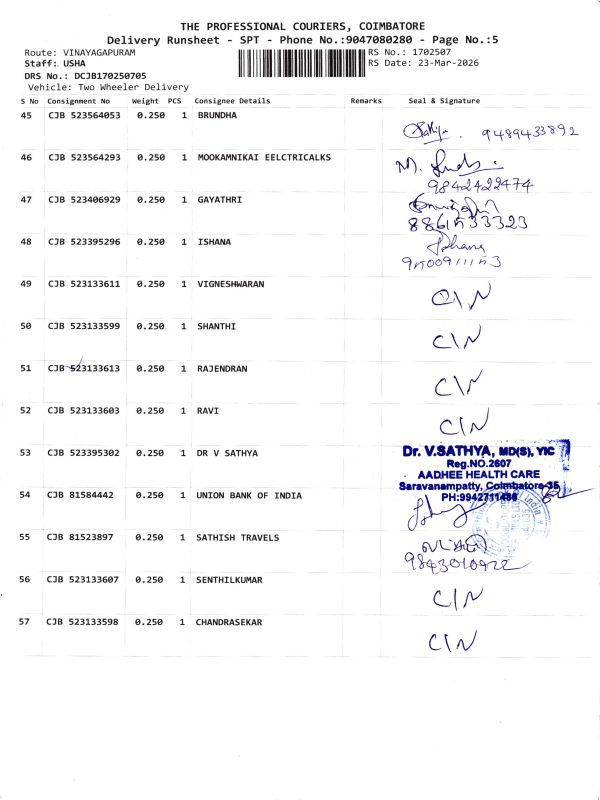 THE PROFESSIONAL COURIERS, COIMBATORE
Delivery Runsheet - SPT - Phone No.:9047080280 - Page No.:5
Route: VINAYAGAPURAM RS No.: 1702507
Staff: USHA RS Date: 23-Mar-2026
DRS No.: DCJB170250705
Vehicle: Two Wheeler Delivery
S No Consignment No Weight PCS Consignee Details Remarks Seal & Signature
45 CJB 523564053 0.250 1 BRUNDHA
9489433892
46 CJB 523564293 0.250 1 MOOKAMNIKAI EELCTRICALKS
9842422474
47 CJB 523406929 0.250 1 GAYATHRI
48 CJB 523395296 0.250 1 ISHANA
Ishana
49 CJB 523133611 0.250 1 VIGNESHWARAN
C/N
50 CJB 523133599 0.250 1 SHANTHI
C/N
51 CJB 523133613 0.250 1 RAJENDRAN
C/N
52 CJB 523133603 0.250 1 RAVI
C/N
53 CJB 523395302 0.250 1 DR V SATHYA
Dr. V.SATHYA, MD(S), YIC
Reg.NO.2607
AADHEE HEALTH CARE
Saravanampatty, Coimbatore-35
PH:9942711486
54 CJB 81584442 0.250 1 UNION BANK OF INDIA
55 CJB 81523897 0.250 1 SATHISH TRAVELS
9843010922
56 CJB 523133607 0.250 1 SENTHILKUMAR
C/N
57 CJB 523133598 0.250 1 CHANDRASEKAR
C/N